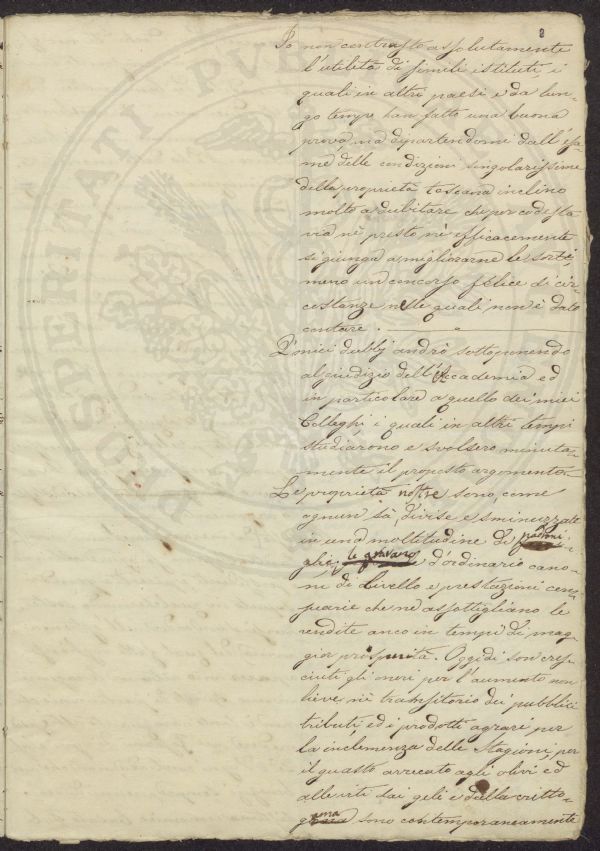 8
Io non contrasto assolutamente
l'utilità di simili istituti, i
quali in altri paesi e da lun-
go tempo han fatto una buona
prova, ma dipartendomi dall'esa-
me delle condizioni singolarissime
della proprietà toscana inclino
molto a dubitare che per codesta
via nè presto nè efficacemente
si giunga a migliorarne le sorti,
meno un concorso felice di cir-
costanze nelle quali non è dato
contare.
I miei dubbj andrò sottoponendo
al giudizio dell'Accademia ed
in particolare a quello dei miei
Colleghi, i quali in altri tempi
studiarono e svolsero minuta-
mente il proposto argomento.
Le proprietà nostre sono, come
ognun sà, divise e sminuzzate
in una moltitudine di
le gravano d'ordinario cano-
ni di Livello e prestazioni cen-
suarie che nè assottigliano le
rendite anco in tempi di mag-
gior prosperità. Oggidì son cres-
ciuti gli oneri per l'aumento non
lieve nè transitorio dei pubblici
tributi, ed i prodotti agrari per
la inclemenza delle Stagioni, per
il guasto arrecato agli olivi ed
alle viti dai geli e dalla critto-
gama sono contemporaneamente
PROSPERITATI PVBLICAE